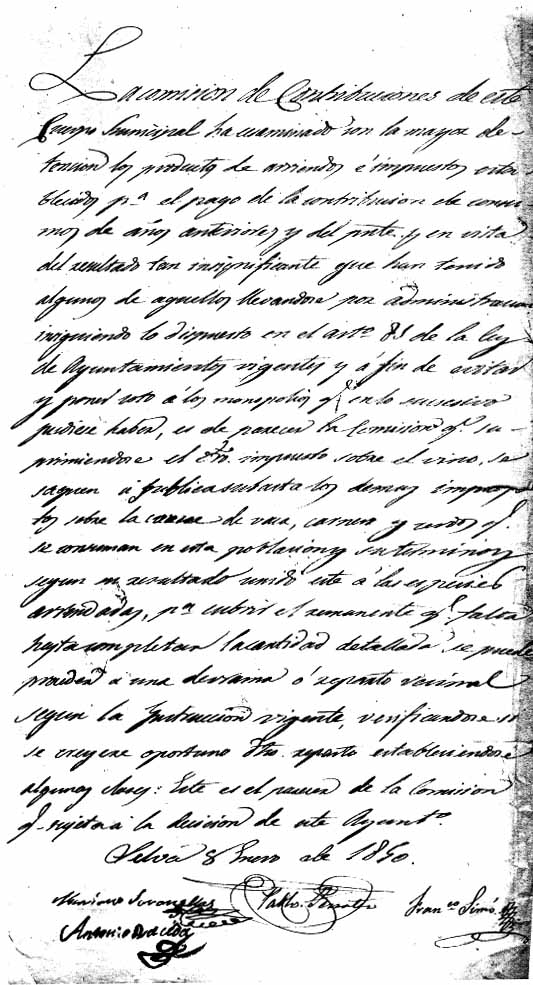 La comision de Contribuciones de este
Cuerpo Municipal ha ecsaminado con la mayor de-
tencion los productos de arriendos é impuestos esta-
blecidos pª el pago de la contribucion de consu-
mos de años anteriores y del pnte. y en vista
del resultado tan insignificante que han tenido
algunos de aquellos llevandose por administracion
insiguiendo lo dispuesto en el artº 81 de la ley
de Ayuntamientos vigentes y á fin de evitar
y poner coto á los monopolios q. en lo sucesivo
pudiese haber, es de parecer la Comision q. su-
primiendose el dho. impuesto sobre el vino, se
saquen á publica subasta los demas impues-
tos sobre la carne de vaca, carnero y cerdos q.
se consuman en esta poblacion y su termino y
segun su resultado unido este á las especies
arrendadas, pª cubrir el remanente q. falta
hasta completar la cantidad detallada se puede
proceder á una derrama ó reparto vecinal
segun la Instruccion vigente, verificandose si
se creyese oportuno dho. reparto estableciendose
algunas clases: Este es el parecer de la Comision
q. sujeta á la decision de este Ayuntº.
Selva 8 Enero de 1850.
Mariano Pablo Franco. Simó
Antonio